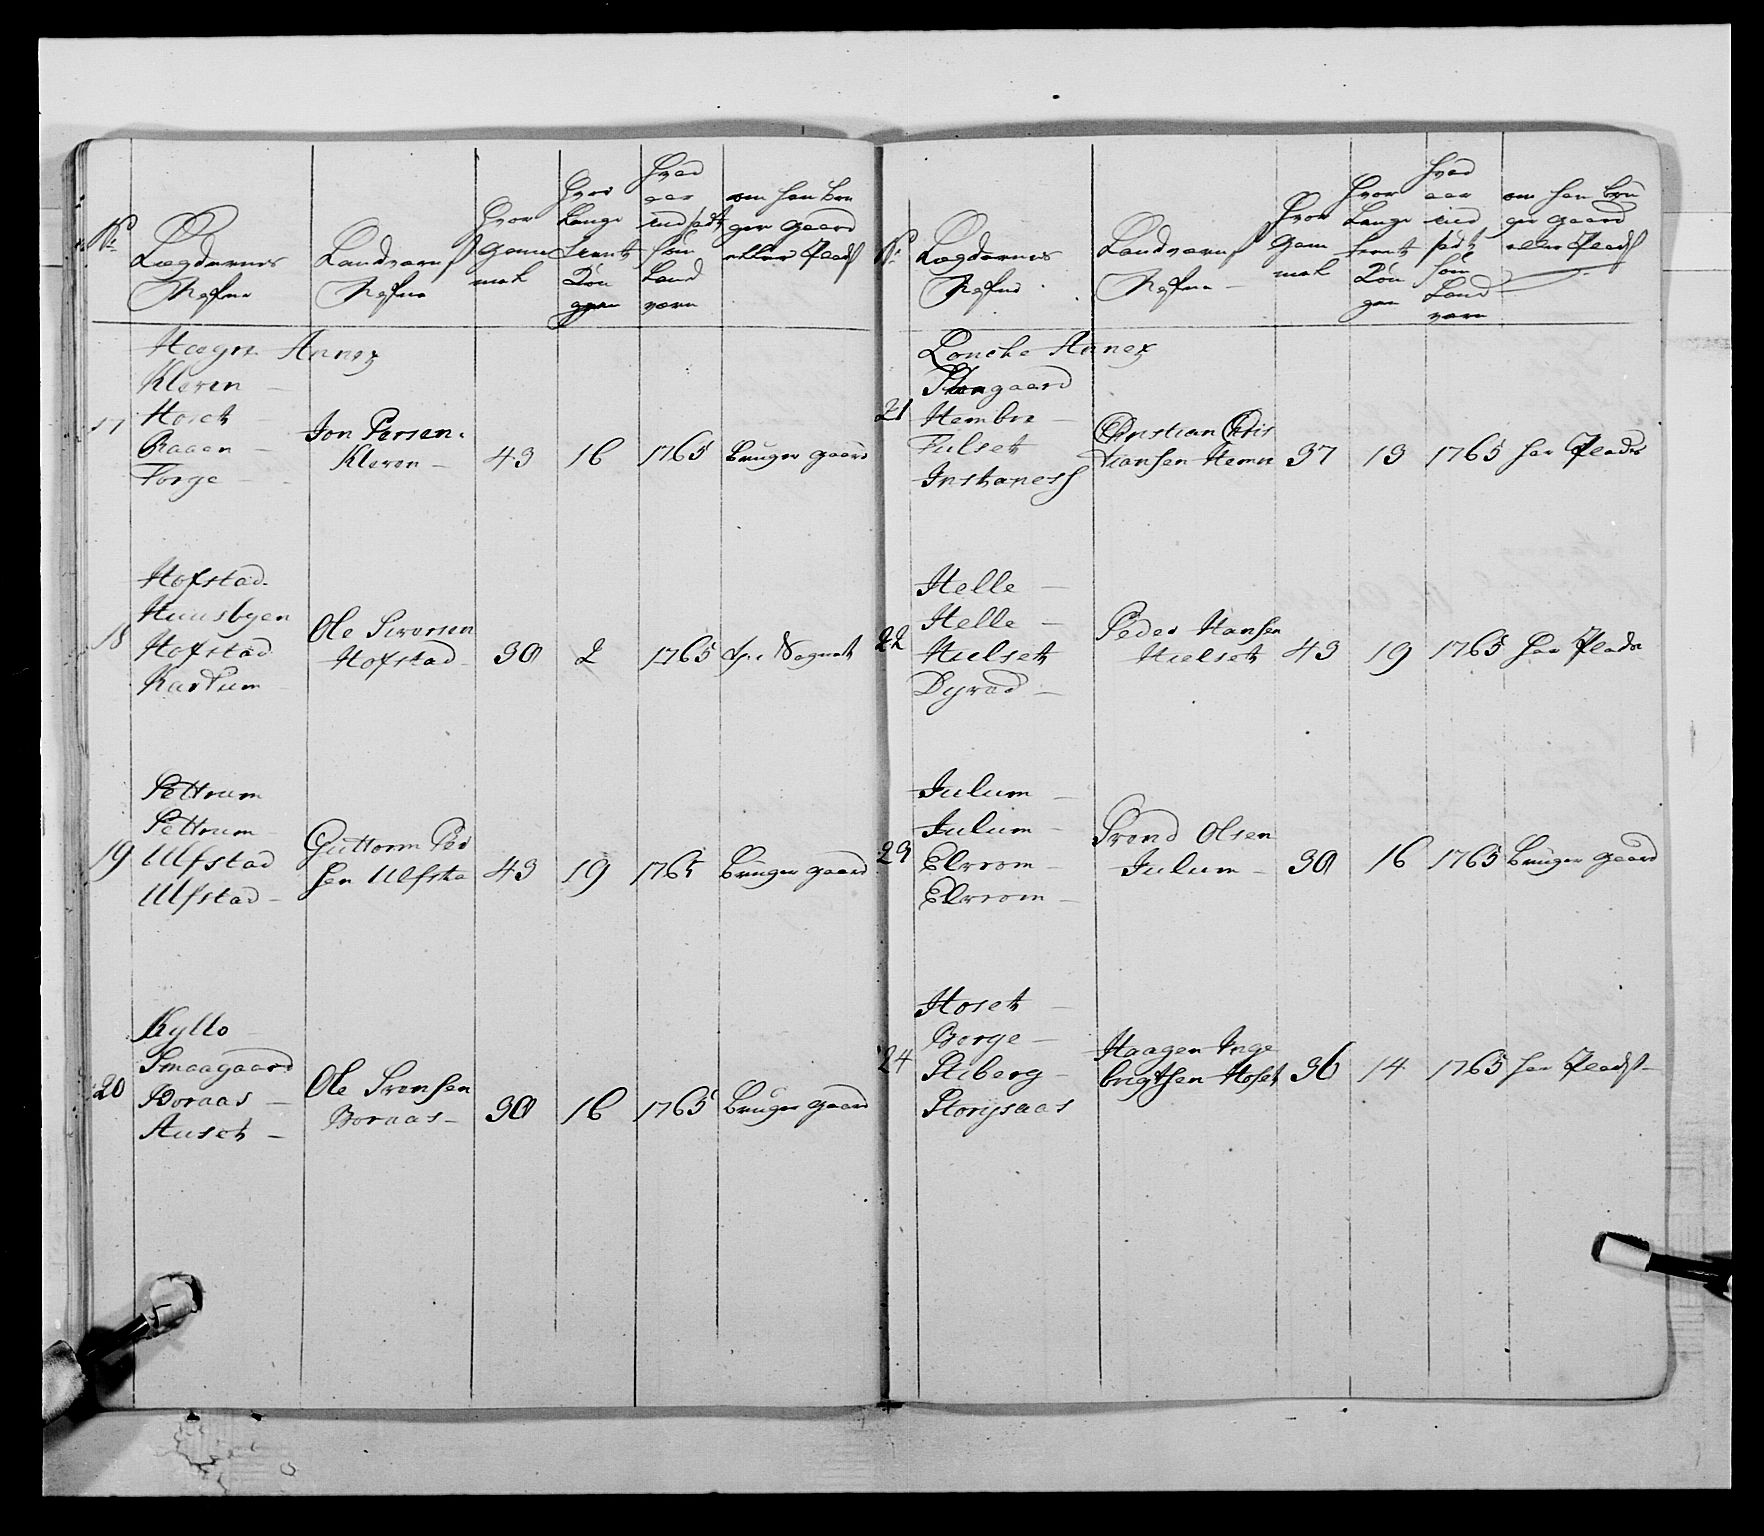 No
Lægdernes
Nafne
Landværns
Nafne
Hvor
Gam
mel
Hvor
Længe
tient
Kon
gen
Hvad
aar
ind sadt
som
Land
værn
om han bru
ger gaard
eller Plads
Hægre Annex
Kleven
17 Hoset
Raaen
Forge
Jon Persen
Kleven 43 16 1765 bruger gaard
Hofstad
Huusbyen
18 Hofstad
Karlum
Ole Siversen
Hofstad 30 2 1765
Settrum
Settrum
19 Ulfstad
Ulfstad
Guttorm Peder
sen Ulfsta 43 19 1765 bruger gaard
Kyllo
Smaagaard
20 Boraas
Auset
Ole Svensen
Boraas 30 16 1765 bruger gaard
No
Lægdernes
Nafne
Landværns
Nafne
Hvor
Gam
mel
Hvor
Længe
tient
Kon
gen
Hvad
aar
ind
sadt
som
Land
værn
om han bru
ger gaard
eller Plads
Loncke Annex
21 Hembre
Fulset
Instaness
Christian Chris
tiansen Hemre 37 13 1765 har Plads
Helle
Helle
22 Hulset
Dyrad
Peder Hansen
Hulset 43 19 1765 har Plads
Julum
Julum
23 Elvrom
Elvrom
Trond Olsen
Julum 30 16 1765 bruger gaard
Hoset
Borge
24 Stiberg
Storysaas
Haagen Inge
brigtsen Hoset 36 14 1765 har Plads